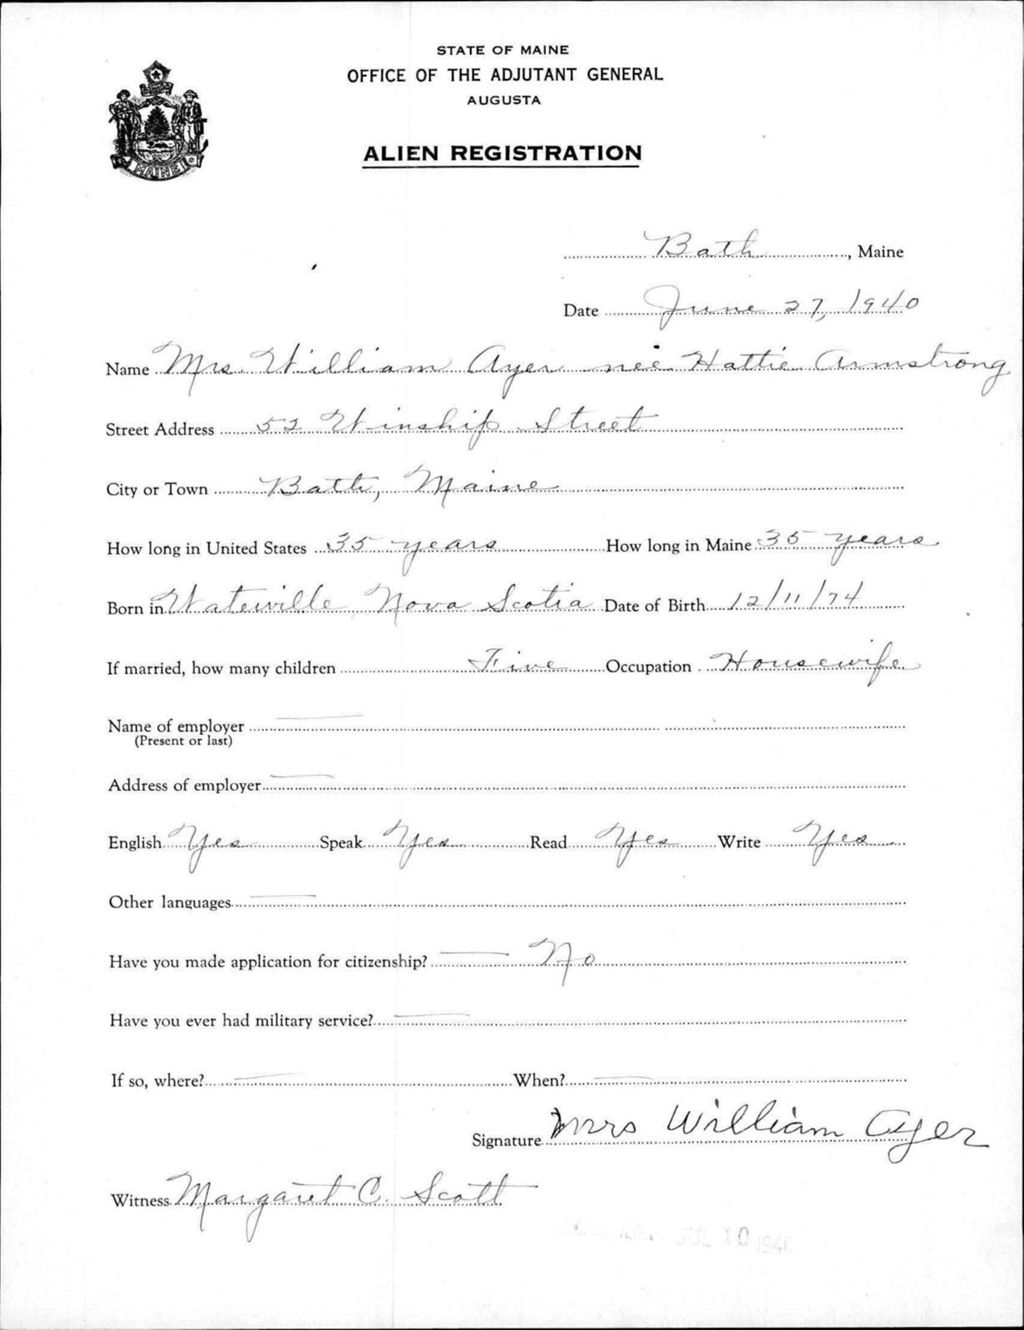 STATE OF MAINE
OFFICE OF THE ADJUTANT GENERAL
AUGUSTA
ALIEN REGISTRATION
MAINE
Bath, Maine
Date June 27, 1940
Name Mrs. William Ayer neé Hattie Armstrong
Street Address 52 Winship Street
City or Town Bath, Maine
How long in United States 35 years How long in Maine 35 years
Born in Waterville Nova Scotia Date of Birth 12/11/74
If married, how many children Five Occupation Housewife
Name of employer
(Present or last)
Address of employer
English Yes Speak Yes Read Yes Write Yes
Other languages
Have you made application for citizenship? No
Have you ever had military service?
If so, where? When?
Signature Mrs William Ayer
Witness Margaret C. Scott
JUL 10 1940